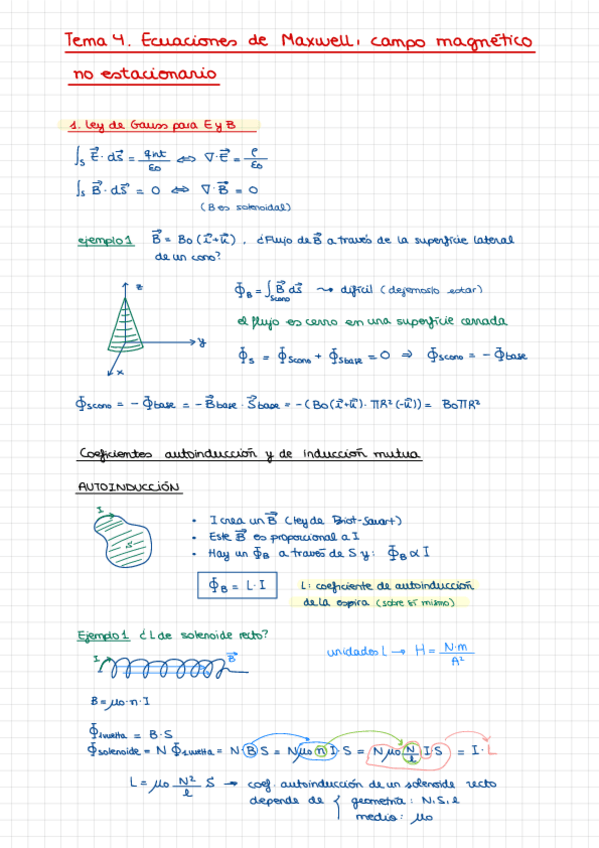 Tema 4. Ecuaciones de Maxwell: campo magnético
no estacionario
1. Ley de Gauss para E y B
∫s E⃗ · ds⃗ = qint/ε0 ⇔ ∇·E⃗ = ρ/ε0
∫s B⃗ · ds⃗ = 0 ⇔ ∇·B⃗ = 0
(B es solenoidal)
ejemplo 1 B⃗ = B0 (i⃗+u⃗) . ¿Flujo de B⃗ a través de la superficie lateral
de un cono?
z
y
x
Φ_B = ∫Scono B⃗ ds⃗ ⇝ difícil (dejemoslo estar)
el flujo es cerro en una superficie cerrada
Φs = Φscono + Φsbase = 0 ⇒ Φscono = - Φbase
Φscono = - Φbase = - B⃗base · S⃗base = - (B0(i⃗+u⃗) · πR²(-u⃗)) = B0πR²
Coeficientes autoinducción y de inducción mutua
AUTOINDUCCIÓN
I
S
• I crea un B⃗ (ley de Biot-Savart)
• Este B⃗ es proporcional a I
• Hay un Φ_B a través de S y: Φ_B ∝ I
Φ_B = L · I
L: coeficiente de autoinducción
de la espira (sobre sí mismo)
Ejemplo 1 ¿L de solenoide recto?
unidades L → H = N·m/A²
I
B⃗
B = μ0·n·I
Φ1vuelta = B·S
Φsolenoide = N Φ1vuelta = N·B·S = Nμ0 n I·S = N μ0 N/l I S = I·L
L = μ0 N²/l S → coef. autoinducción de un solenoide recto
depende de { geometría: N, S, l
medio: μ0